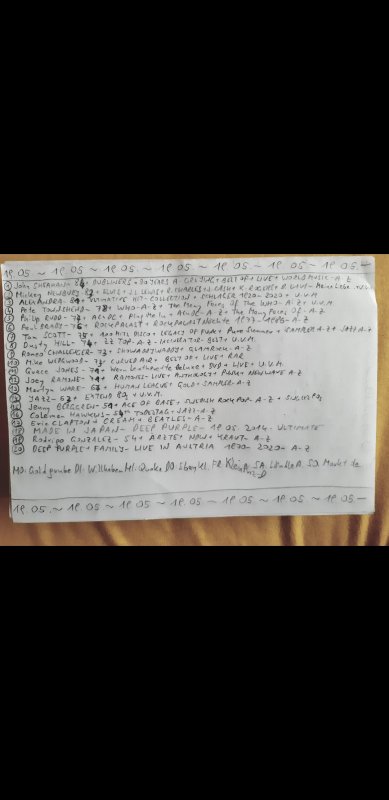 19.05. ~ 19.05 ~ 19.05. ~ 19.05 ~ 19.05 ~ 19.05 ~ 19.05. ~
① John SHEAHAN 84+ DUBLINERS + 50 YEARS A CELTIC + BEST OF + LIVE + WORLD MUSIC - A-Z
② Mickey NEWBURY 82 + ELVIS + J.L. LEWIS + R. CHARLES + J. CASH + K. ROGERS +
③ ALEXANDRA 81 + ULTIMATIVE HIT-COLLECTION + SCHLAGER 1920-2020 + U.V.M.
④ Pete TOWNSHEND - 78 + WHO - A-Z + The Many Faces Of The WHO - A-Z + U.V.M.
⑤ Philip RUDD - 72 + AC/DC + Plug Me In + AC/DC A-Z + The Many Faces Of - A-Z
⑥ Paul BRADY - 76 + ROCKPALAST + ROCKPALAST Nächte 1977-1986 - A-Z
⑦ Tom SCOTT - 75 + 100 HITS DISCO + LEGACY OF FUNK + Pure Summer + SAMPLER A-Z + JAZZ A-Z
⑧ Dusty HILL - 74 + ZZ TOP - A-Z + BEST + U.V.M.
⑨ Romeo CHALLENGER - 73 + SHOWADDYWADDY + GLAMROCK - A-Z
⑩ Mike WEDGWOOD - 73 + CURVED AIR + BEST OF + LIVE + RAR
⑪ Grace JONES - 74 + Warm Leatherette Deluxe + DVD + LIVE + U.V.M.
⑫ Joey RAMONE - 72 + RAMONES - LIVE + ANTHOLOGY + PUNK + NEW WAVE A-Z
⑬ Martyn WARE - 67 + HUMAN LEAGUE + GOLD + SAMPLER - A-Z
⑭ YAZZ - 63 + EXTEND 80s + U.V.M.
⑮ Jenny BERGGREN - 51 + ACE OF BASE + SWEDISH ROCK POP A-Z +
⑯ Coleman HAWKINS - TODESTAG - JAZZ - A-Z
⑰ Eric CLAPTON + CREAM + BEATLES - A-Z
MADE IN JAPAN - DEEP PURPLE - 19.05.2014. ULTIMATE
⑲ Rodrigo GONZALEZ - 54 + ÄRZTE + NDW + KRAUT - A-Z
⑳ DEEP PURPLE + FAMILY - LIVE IN AUSTRIA 1970-2020 - A-Z
MO. Goldgrube DI. MI. DO. FR. SA. SO. Markt
19.05. ~ 19.05 ~ 19.05 ~ 19.05 ~ 19.05 ~ 19.05 ~ 19.05. ~